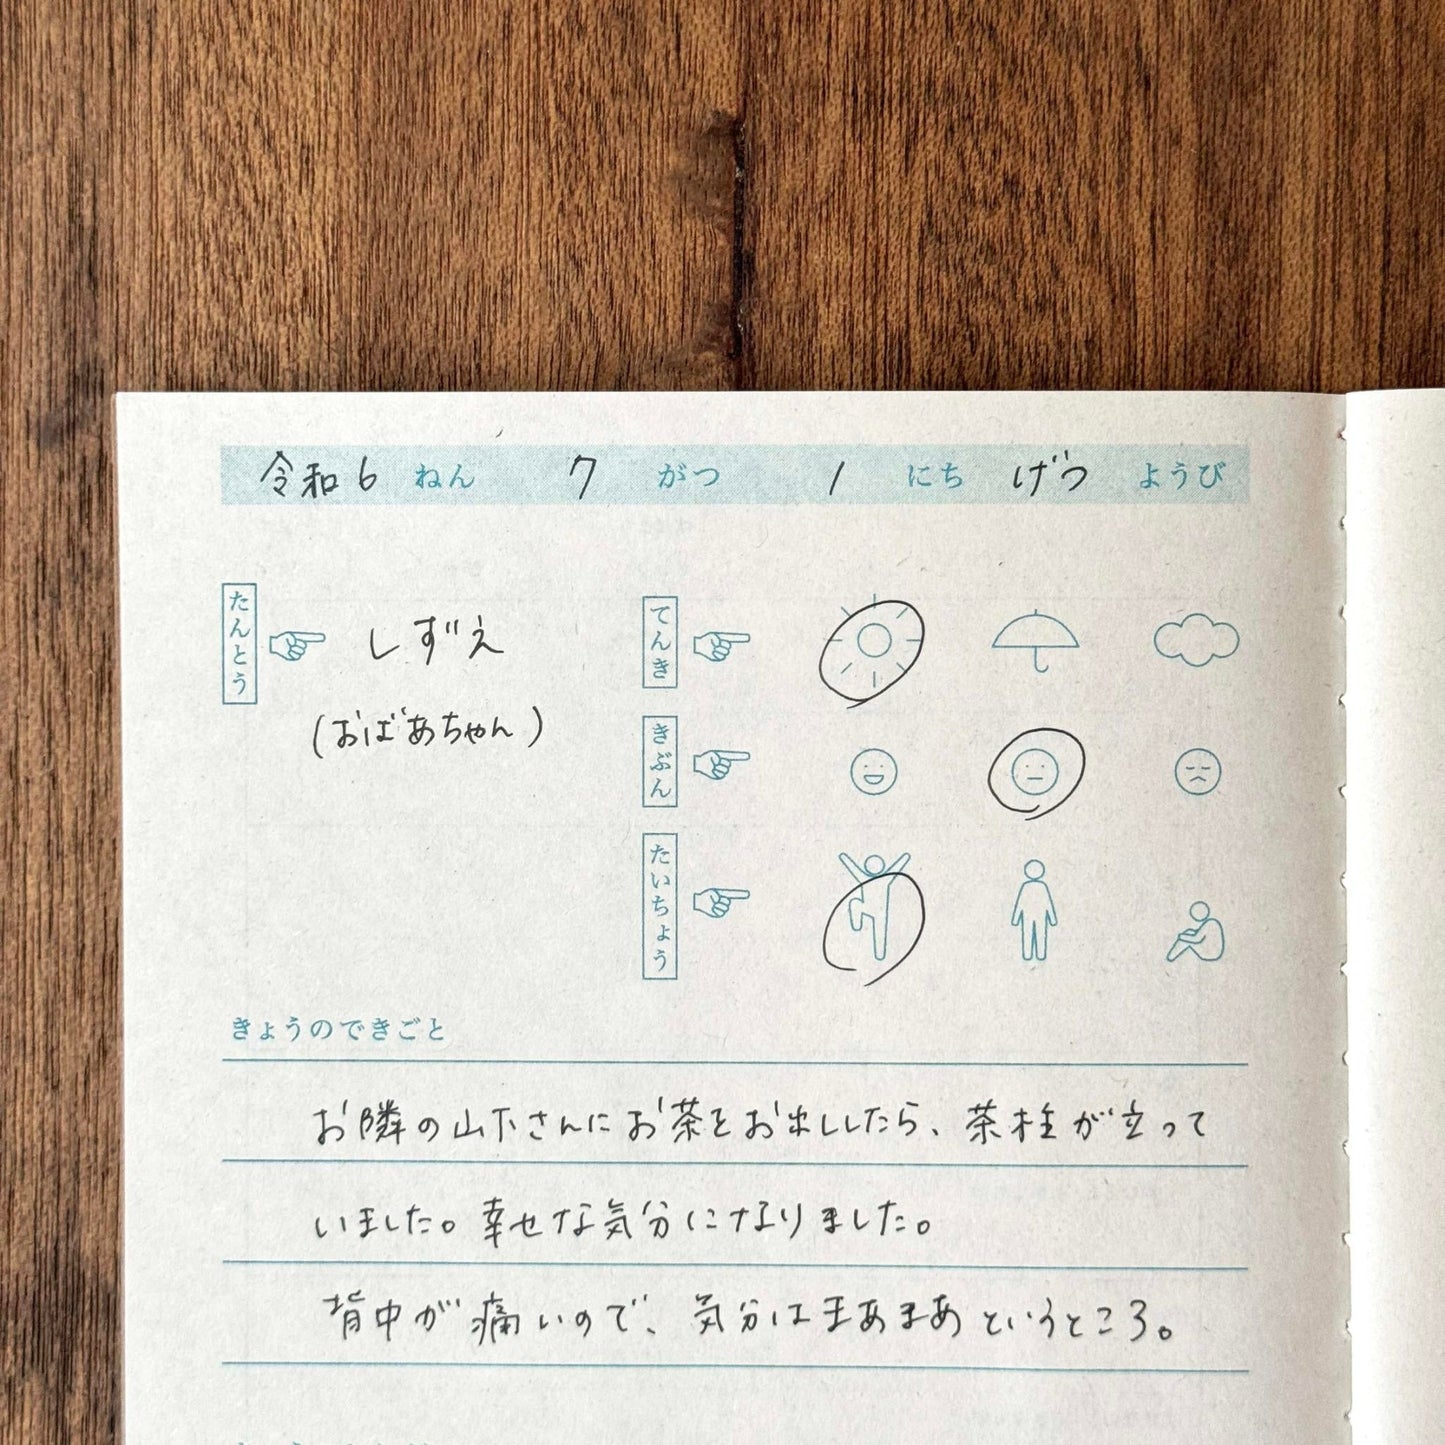 令和6 ねん 7 がつ 1 にち げつ ようび
たんとう しずえ
(おばあちゃん)
てんき
きぶん
たいちょう
きょうのできごと
お隣の山下さんにお茶をお出ししたら、茶柱が立って
いました。幸せな気分になりました。
背中が痛いので、気分はまあまあというところ。